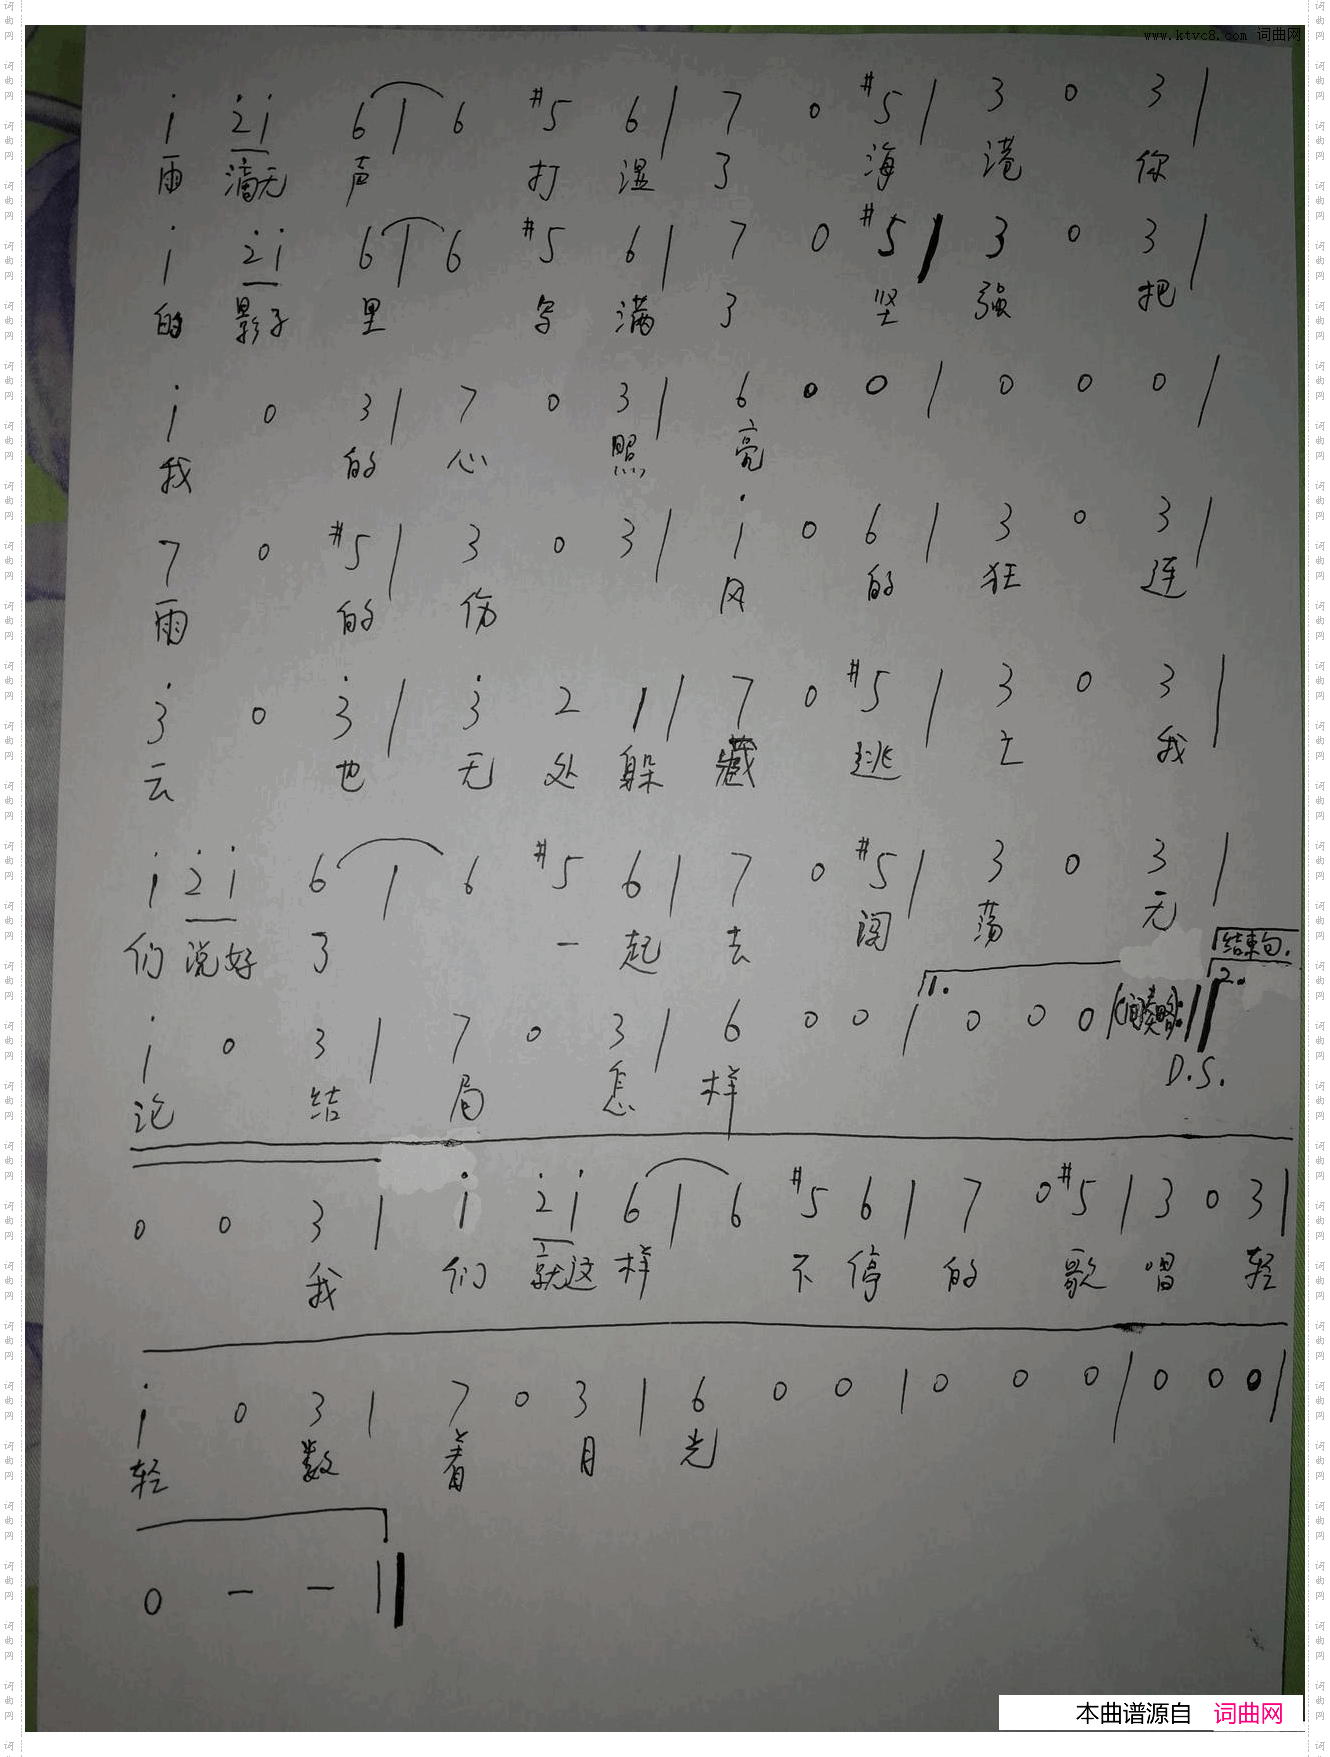 www.ktvc8.com 词曲网
i 2i 6 | 6 #5 6 | 7 0 #5 | 3 0 3 |
雨 滴无 声 打 湿 了 海 港 你
i 2i 6 | 6 #5 6 | 7 0 #5 | 3 0 3 |
的 影子 里 写 满 了 坚 强 把
i 0 3 | 7 0 3 | 6 0 0 | 0 0 0 |
我 的 心 照 亮
7 0 #5 | 3 0 3 | i 0 6 | 3 0 3 |
雨 的 伤 风 的 狂 连
3 0 3 | 3 2 1 | 7 0 #5 | 3 0 3 |
云 也 无 处 躲 藏 逃 亡 我
i 2i 6 | 6 #5 6 | 7 0 #5 | 3 0 3 |
们 说好 了 一 起 去 闯 荡 无
结束句.
1. 2.
i 0 3 | 7 0 3 | 6 0 0 | 0 0 0 | (间奏略) :||
D.S.
论 结 局 怎 样
0 0 3 | i 2i 6 | 6 #5 6 | 7 0 #5 | 3 0 3 |
我 们 就这 样 不 停 的 歌 唱 轻
i 0 3 | 7 0 3 | 6 0 0 | 0 0 0 | 0 0 0 |
轻 数 着 月 光
0 – – ||
本曲谱源自 词曲网